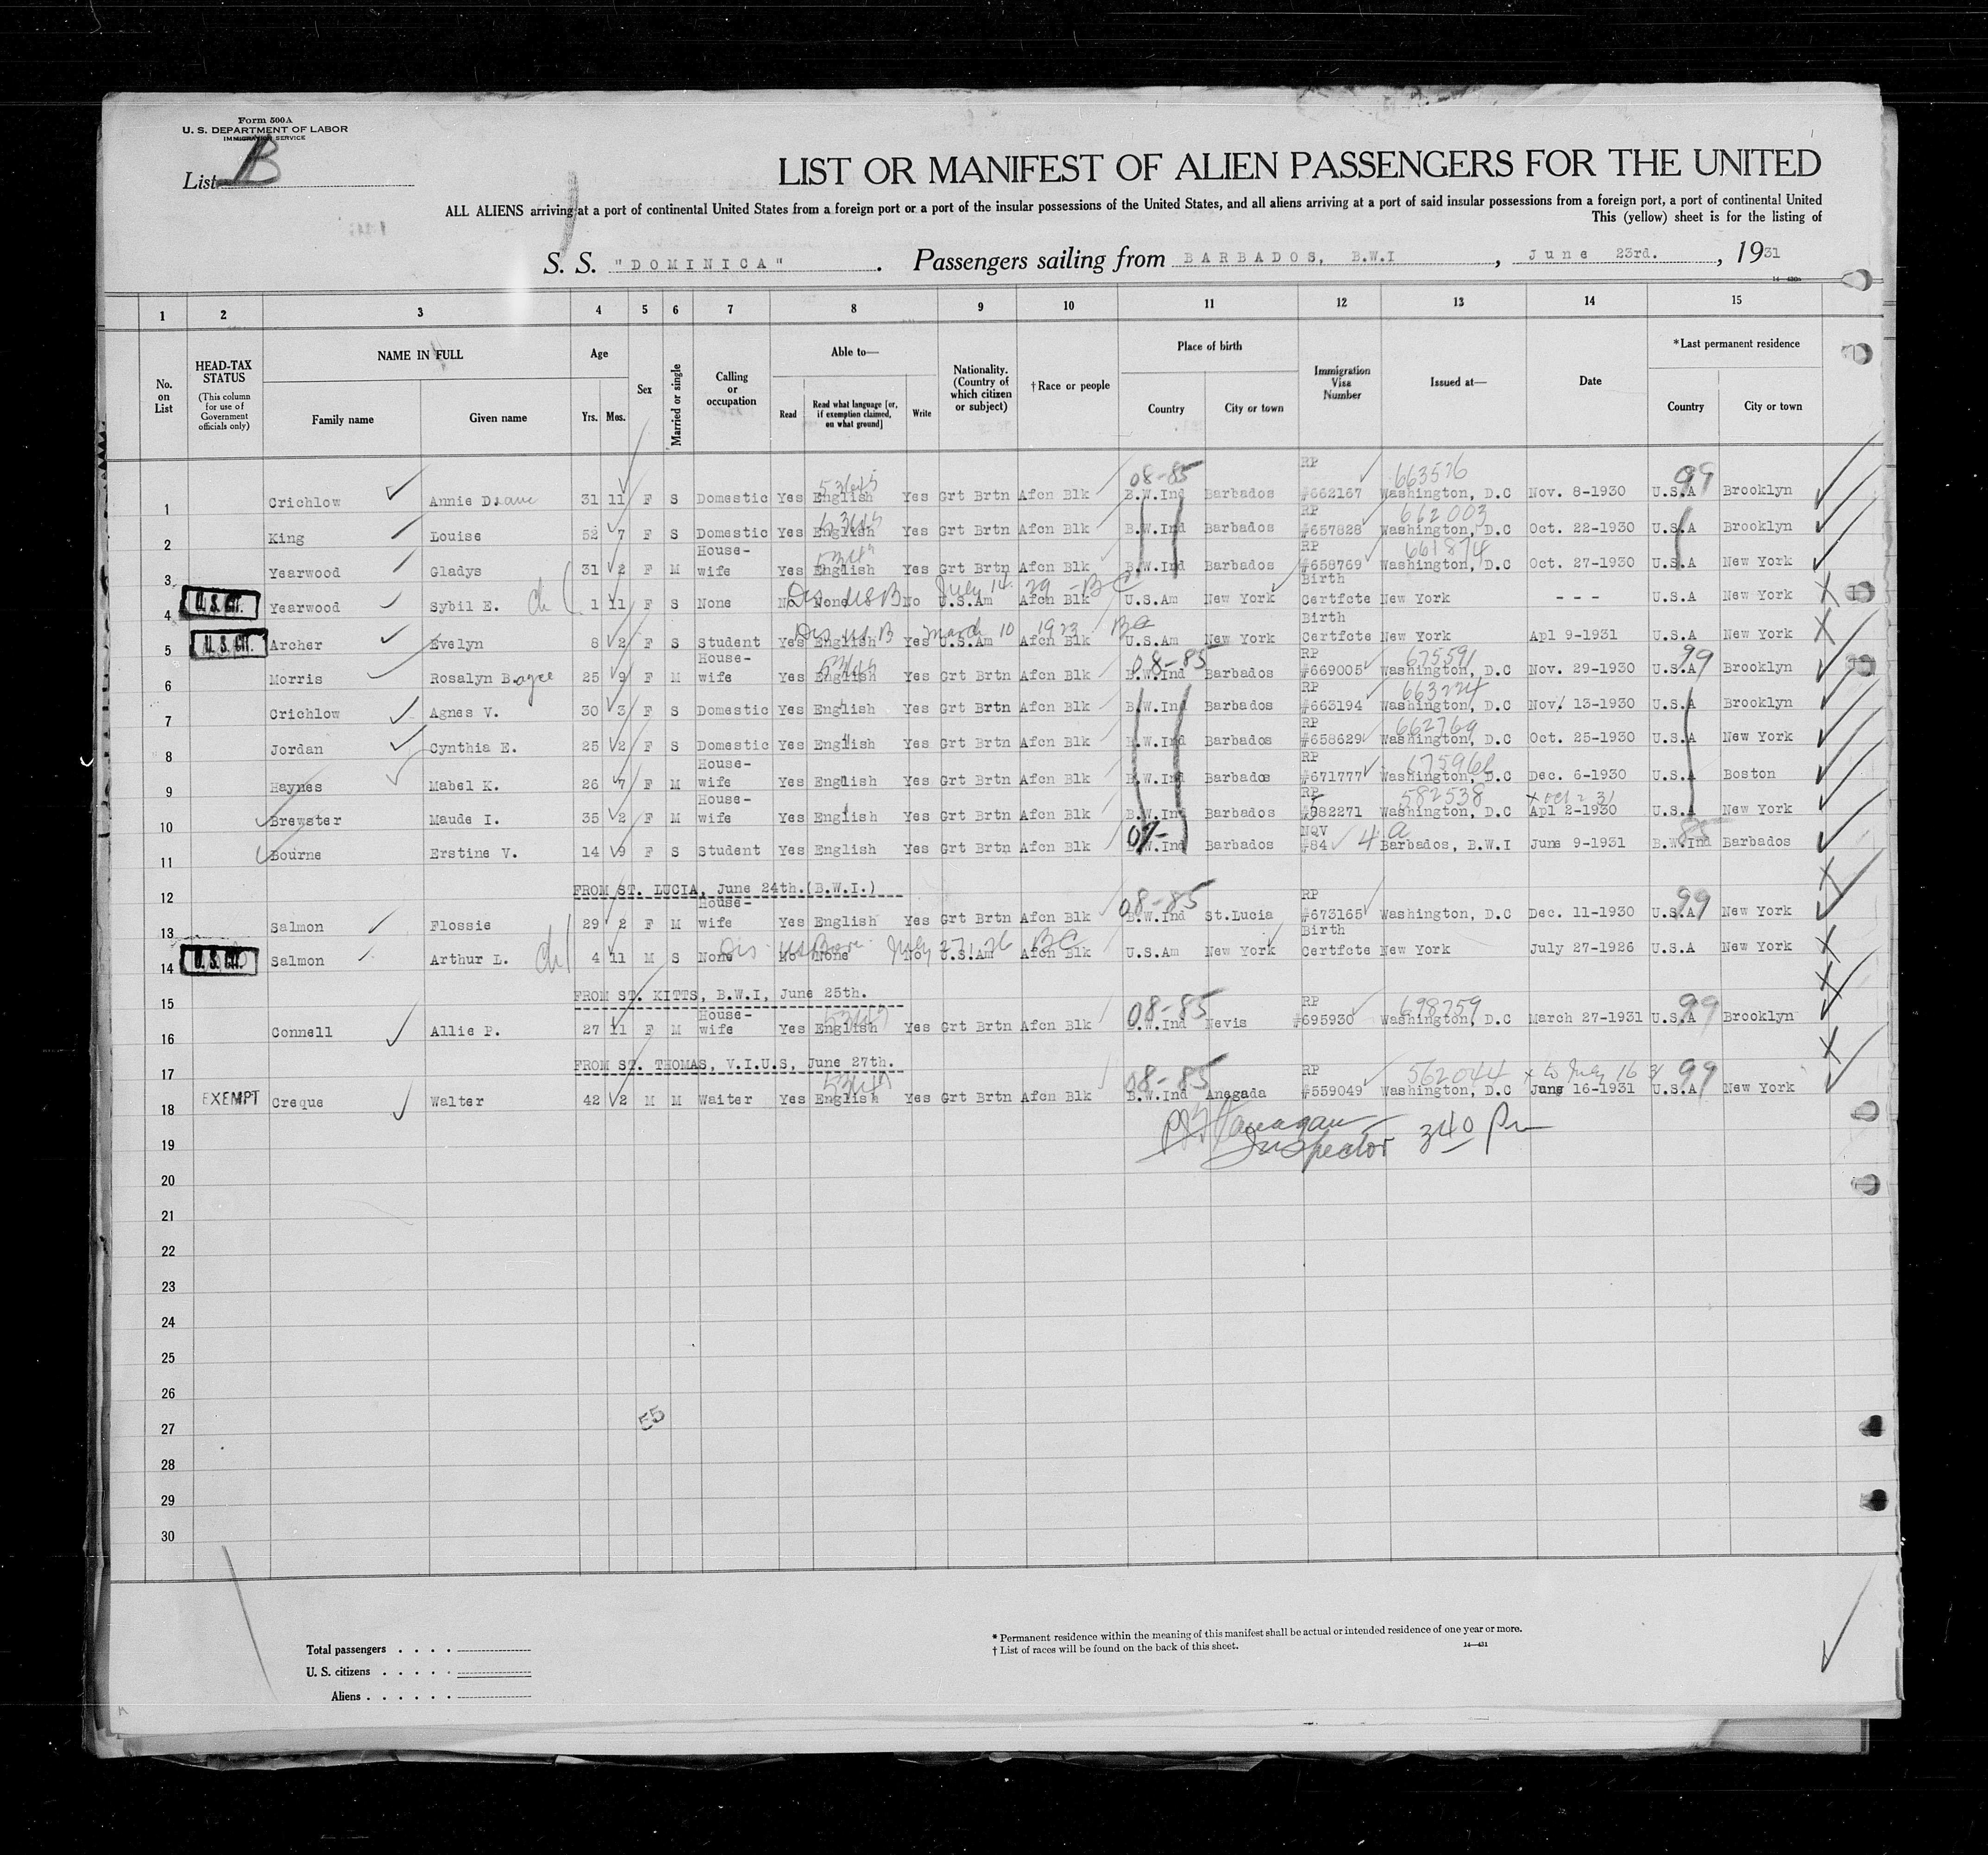 Form 500A
U. S. DEPARTMENT OF LABOR
IMMIGRATION SERVICE
List B
LIST OR MANIFEST OF ALIEN PASSENGERS FOR THE UNITED
ALL ALIENS arriving at a port of continental United States from a foreign port or a port of the insular possessions of the United States, and all aliens arriving at a port of said insular possessions from a foreign port, a port of continental United
This (yellow) sheet is for the listing of
S. S. "DOMINICA". Passengers sailing from BARBADOS, B.W.I, June 23rd., 1931
14-430a
1 2 3 4 5 6 7 8 9 10 11 12 13 14 15
No. on List
HEAD-TAX STATUS (This column for use of Government officials only)
NAME IN FULL Family name Given name
Age Yrs. Mos.
Sex
Married or single
Calling or occupation
Able to— Read Read what language [or, if exemption claimed, on what ground] Write
Nationality. (Country of which citizen or subject)
†Race or people
Place of birth Country City or town
Immigration Visa Number
Issued at—
Date
*Last permanent residence Country City or town
08-85 RP 663576 99
1 Crichlow Annie Diane 31 11 F S Domestic Yes English Yes Grt Brtn Afcn Blk B.W.Ind Barbados #662167 Washington, D.C Nov. 8-1930 U.S.A Brooklyn
RP 662003
2 King Louise 52 7 F S Domestic Yes English Yes Grt Brtn Afcn Blk B.W.Ind Barbados #657828 Washington, D.C Oct. 22-1930 U.S.A Brooklyn
House- RP 661874
3 Yearwood Gladys 31 2 F M wife Yes English Yes Grt Brtn Afcn Blk B.W.Ind Barbados #658769 Washington, D.C Oct. 27-1930 U.S.A New York
Dis US B July 14 29 - BC Birth
4 U.S. CIT. Yearwood Sybil E. ch 1 11 F S None No None No U.S.Am Afcn Blk U.S.Am New York Certfcte New York - - - U.S.A New York
Dis US B March 10 1923 BC Birth
5 U.S. CIT. Archer Evelyn 8 2 F S Student Yes English Yes U.S.Am Afcn Blk U.S.Am New York Certfcte New York Apl 9-1931 U.S.A New York
House- 08-85 RP 675591 99
6 Morris Rosalyn Bagee 25 9 F M wife Yes English Yes Grt Brtn Afcn Blk B.W.Ind Barbados #669005 Washington, D.C Nov. 29-1930 U.S.A Brooklyn
RP 663224
7 Crichlow Agnes V. 30 3 F S Domestic Yes English Yes Grt Brtn Afcn Blk B.W.Ind Barbados #663194 Washington, D.C Nov. 13-1930 U.S.A Brooklyn
RP 662769
8 Jordan Cynthia E. 25 2 F S Domestic Yes English Yes Grt Brtn Afcn Blk B.W.Ind Barbados #658629 Washington, D.C Oct. 25-1930 U.S.A New York
House- RP
9 Haynes Mabel K. 26 7 F M wife Yes English Yes Grt Brtn Afcn Blk B.W.Ind Barbados #671777 Washington, D.C Dec. 6-1930 U.S.A Boston
House- RP 582538 x Oct 2 31
10 Brewster Maude I. 35 2 F M wife Yes English Yes Grt Brtn Afcn Blk B.W.Ind Barbados #582271 Washington, D.C Apl 2-1930 U.S.A New York
07- NQV 4 a 85
11 Bourne Erstine V. 14 9 F S Student Yes English Yes Grt Brtn Afcn Blk B.W.Ind Barbados #84 Barbados, B.W.I June 9-1931 B.W.Ind Barbados
12 FROM ST. LUCIA, June 24th.(B.W.I.)
House- 08-85 RP 99
13 Salmon Flossie 29 2 F M wife Yes English Yes Grt Brtn Afcn Blk B.W.Ind St.Lucia #673165 Washington, D.C Dec. 11-1930 U.S.A New York
Dis US Born July 27 1926 BC Birth
14 U.S. CIT. Salmon Arthur L. ch 4 11 M S None No None No U.S.Am Afcn Blk U.S.Am New York Certfcte New York July 27-1926 U.S.A New York
15 FROM ST. KITTS, B.W.I, June 25th.
House- 08-85 RP 698759 99
16 Connell Allie P. 27 11 F M wife Yes English Yes Grt Brtn Afcn Blk B.W.Ind Nevis #695930 Washington, D.C March 27-1931 U.S.A Brooklyn
17 FROM ST. THOMAS, V.I.U.S, June 27th.
08-85 RP 562044 x to July 16 31 99
18 EXEMPT Creque Walter 42 2 M M Waiter Yes English Yes Grt Brtn Afcn Blk B.W.Ind Anegada #559049 Washington, D.C June 16-1931 U.S.A New York
Inspector 340 Pm
19
20
21
22
23
24
25
26
55
27
28
29
30
Total passengers . . . .
U. S. citizens . . . . .
Aliens . . . . . .
* Permanent residence within the meaning of this manifest shall be actual or intended residence of one year or more.
† List of races will be found on the back of this sheet.
14-431